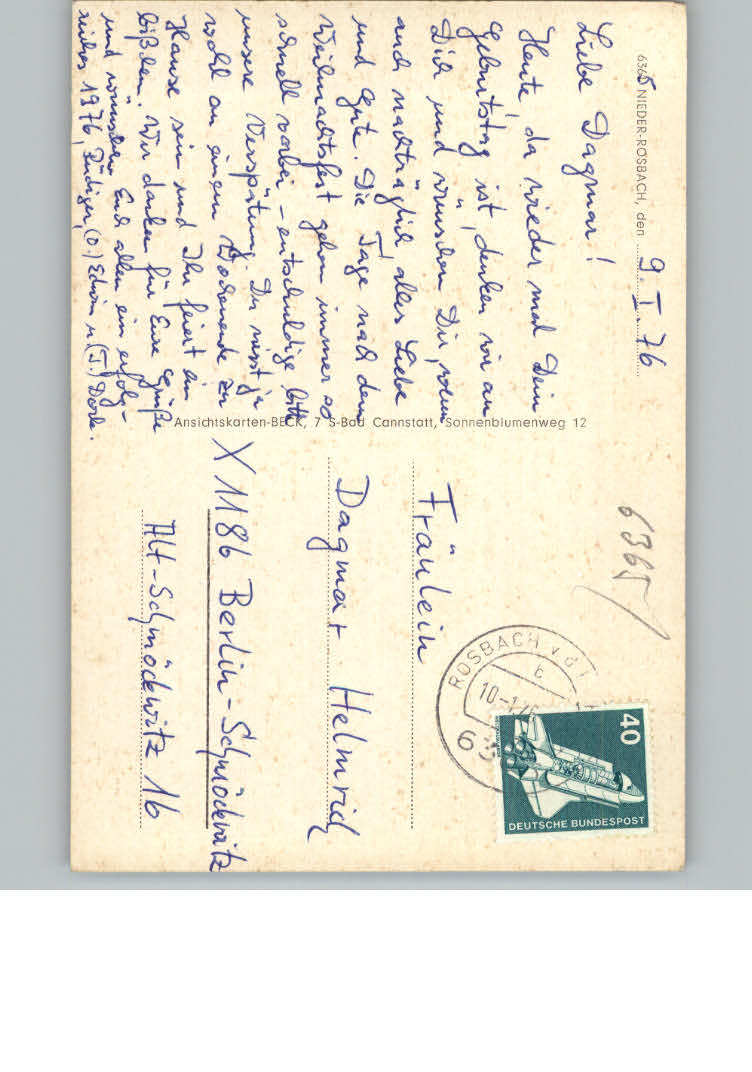 6365 NIEDER-ROSBACH, den 9. I. 76
Liebe Dagmar!
Heute da wieder mal Dein
Geburtstag ist, denken wir an
Dich und wünschen Dir, wenn
auch nachträglich, alles Liebe
und Gute. Die Tage nach dem
Weihnachtsfest gehen immer so
schnell vorbei – entschuldige bitte
unsere Verspätung. Du wirst ja
wohl an einem Wochenende zu
Hause sein und Ihr feiert ein
bißchen. Wir danken für Eure Grüße
und wünschen Euch allen ein erfolg-
reiches 1976, Rüdiger, (O.) Edwin u. (T.) Dorle.
Ansichtskarten-BECK, 7 S-Bad Cannstatt, Sonnenblumenweg 12
6365
ROSBACH v d
b
10-1.76
63
40
DEUTSCHE BUNDESPOST
Fräulein
Dagmar Helmrich
X 1186 Berlin-Schmöckwitz
Alt-Schmöckwitz 16